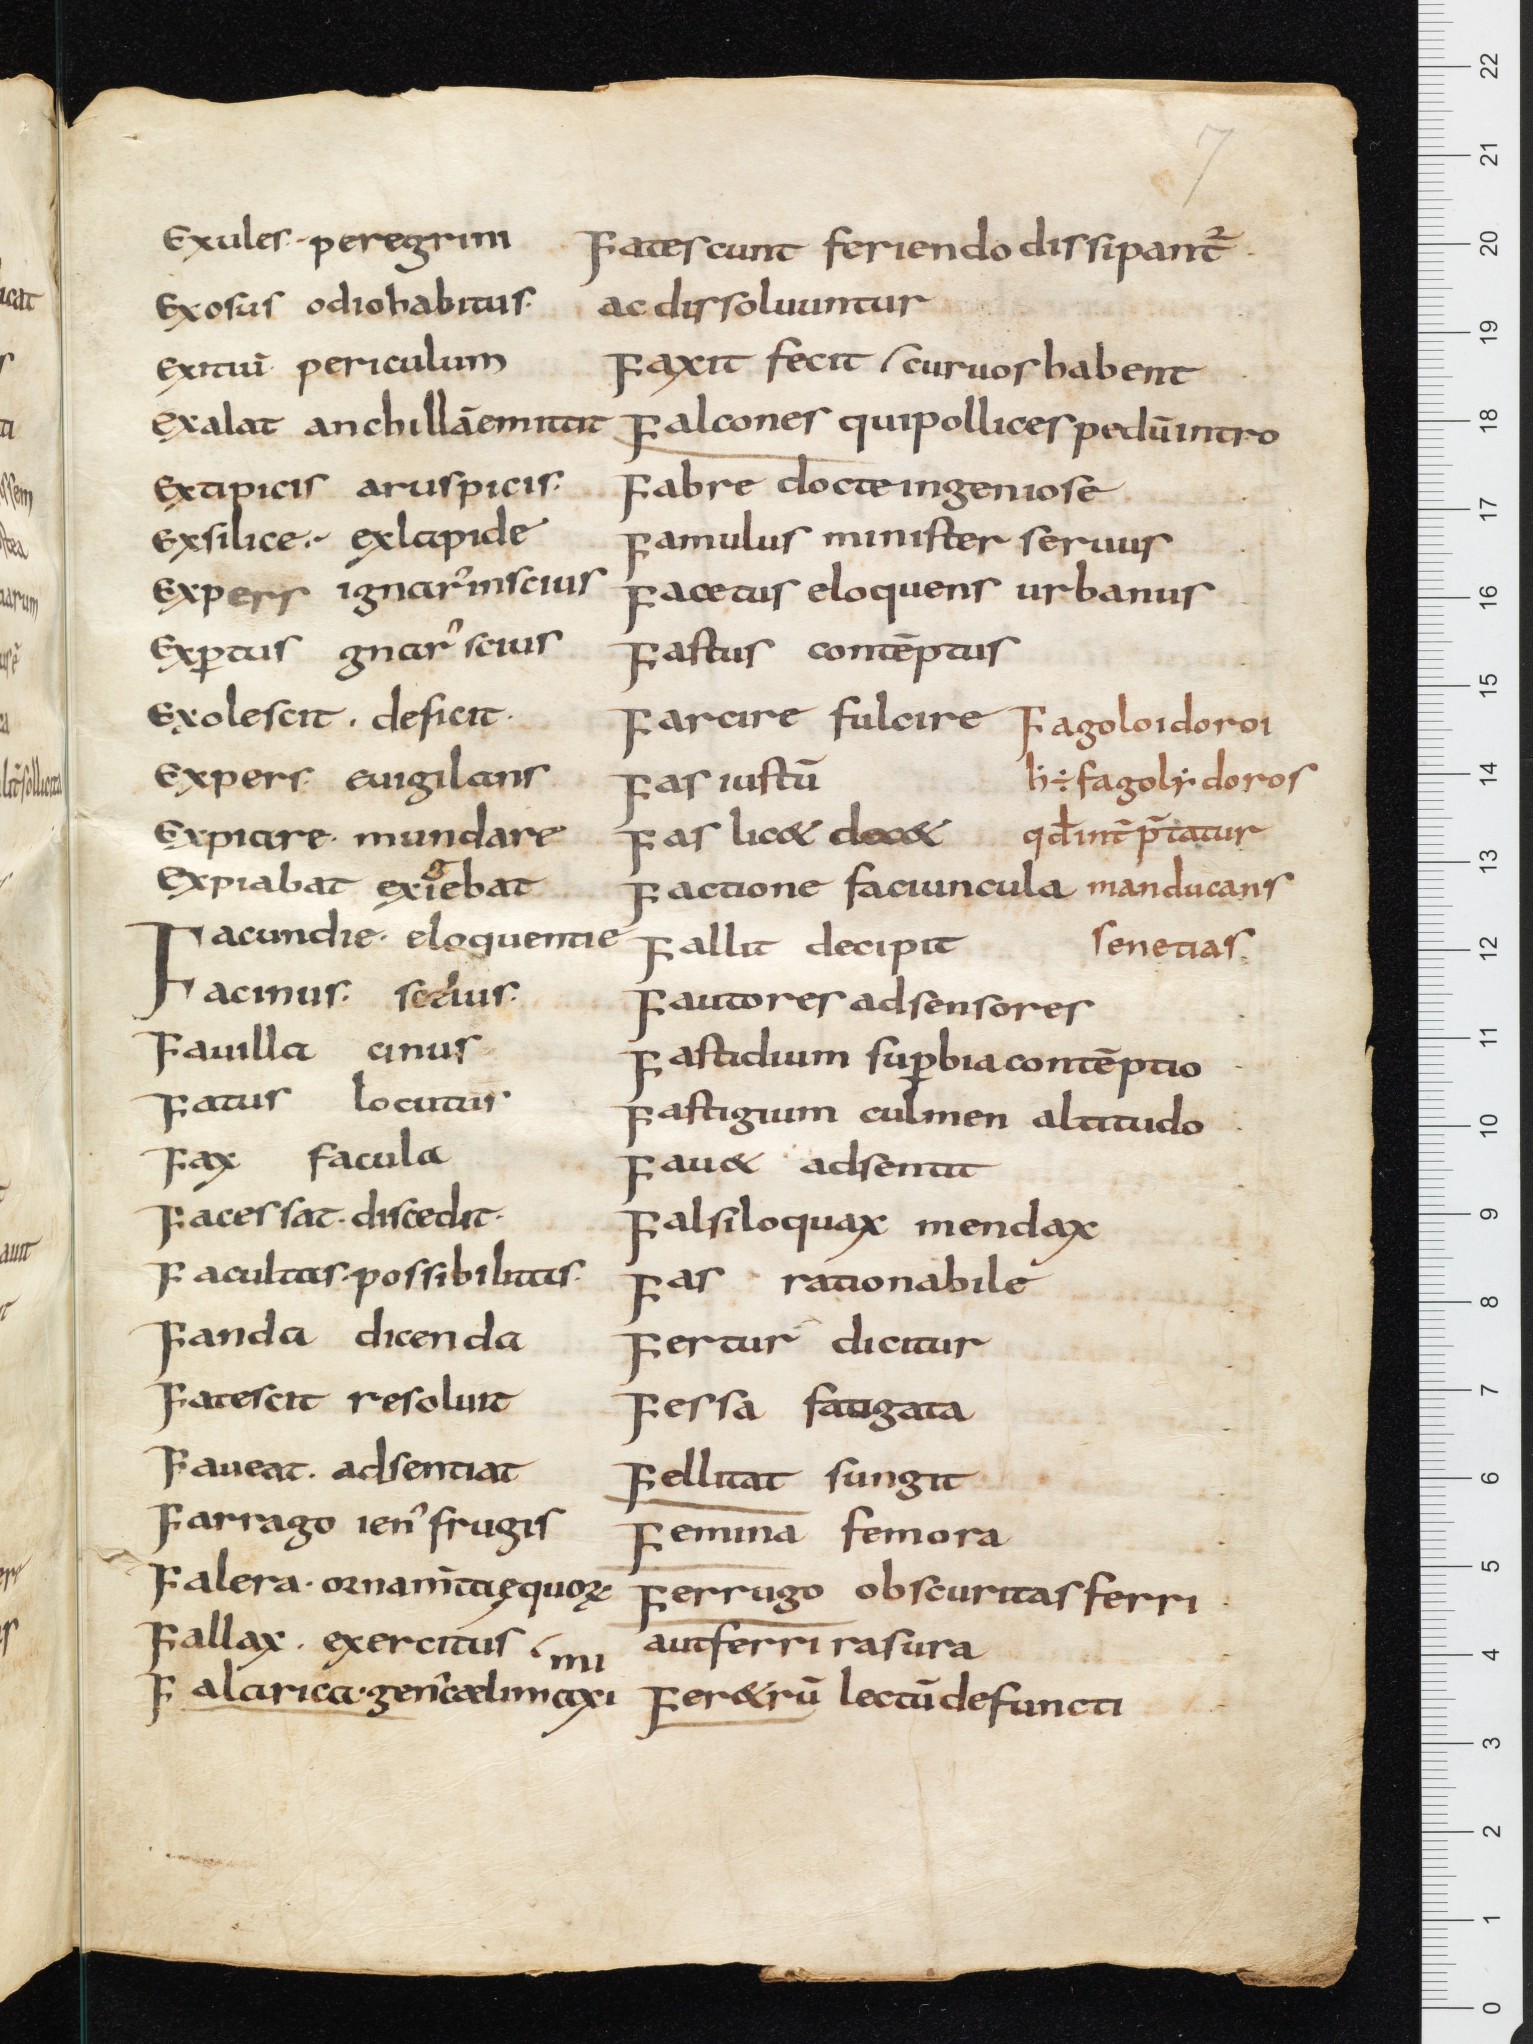 7
Exules · peregrini
Exosus odiohabitus ·
Exitiū · periculum
Exalat anchillāemittit
Extipicis aruspicis ·
Exsilice · exlapide
Expers ignar᾿inscius
Exꝑtus gnar᾿scius
Exolescit · deficit ·
Expers · euigilans
Expiare · mundare
Expiabat exigebat
Facundie · eloquentie
Facinus · scelus ·
Fauilla cinus
Fatus locutus
Fax facula
Facessat · discedit ·
Facultas · possibilitas ·
Fanda dicenda
Fatescit resoluit
Faueat · adsentiat
Farrago ien᾿frugis
Falera · ornam̄taęquoꝝ
Fallax · exercitus
mi
Falarica · gen᾿tælimaxi
Fatescunt feriendo dissipant᷑ ·
ac dissoluuntur
Faxit fecit curuos habent
Falcones qui pollices pedū intro
Fabre docte ingeniose
Famulus minister seruus
Facetus eloquens urbanus
Fastus contēptus
Farcire fulcire
Fas iustū
Fas lic& doc&
Factione faciuncula
Fallit decipit
Fautores adsensores
Fastidium suꝑbia contēptio
Fastigium culmen altitudo
Fau& adsentit
Falsiloquax mendax
Fas rationabile
Fertur dicitur
Fessa fatigata
Fellitat sungit
Femina femora
Ferrugo obscuritas ferri
aut ferri rasura
Fer&rū lectū defuncti
Fagoloidoroi
h÷ fagoly doros
qđ int̄p̄tatur
manducans
senetias.